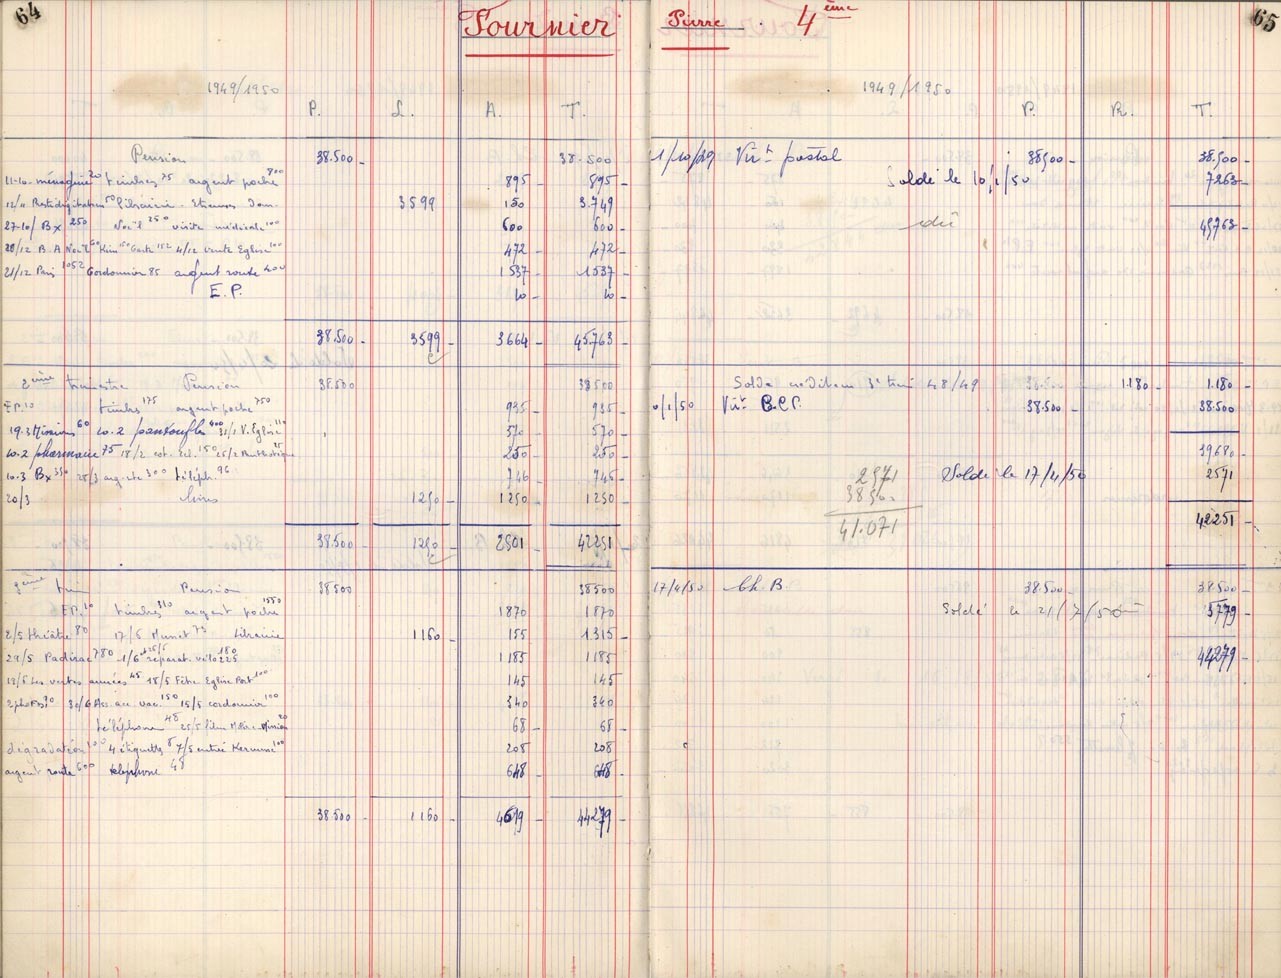 64
Fournier
1949/1950
P. L. A. T.
Pension 38.500 - 38.500
11-10. ménagère 20 timbres 75 argent poche 800 895 - 895 -
12/11 50 Librairie - Etrennes Dom. 3599 150 3.749
27-10/ Bx 250 Noël 250 visite médicale 100 600 600 -
20/12 B.A Noël 60 Carte 152 4/12 vente Eglise 100 472 - 472 -
21/12 Paris 1052 Cordonnier 85 argent route 400 1537 - 1537 -
E.P. 10 - 10 -
38.500 - 3599 - 3664 - 45.763 -
2ème trimestre Pension 38.500 38500
E.P. 10 timbres 175 argent poche 750 935 - 935 -
19.3 Missions 60 10.2 pantoufles 400 31/1 V. Eglise 110 570 - 570 -
10.2 pharmacie 75 18/2 cot. Ecl. 150 25/2 25 250 - 250 -
10.3 Bx 350 25/3 arg. rte 300 téléph. 96 746 - 746 -
20/3 livres 1250 - 1250 - 1250 -
38.500 - 1250 - 2501 - 42251 -
3ème trim Pension 38500 38500 -
E.P. 10 timbres 310 argent poche 1550 1870 1870 -
2/5 théâtre 80 17/5 Musset 75 Librairie 1160 - 155 1.315 -
29/5 Padirac 780 1/6 réparat. vélo 225 180 1185 1185 -
12/5 Les vertes années 45 18/5 Fête Eglise Port 100 145 145 -
2 photos 90 30/6 Ass. acc. vac. 150 15/5 cordonnier 100 340 340 -
téléphone 48 25/5 film Missions 20 68 - 68 -
dégradation 100 4 étiquettes 8 7/5 entrée Kermesse 100 208 208 -
argent route 600 téléphone 48 648 - 648 -
38.500 - 1160 - 4619 - 44279 -
65
Pierre 4ème
1949/1950
P. R. T.
1/10/49 Virt postal 38500 - 38.500 -
Soldé le 10/1/50 7263 -
dû 45763 -
Solde créditeur 3e trim 48/49 1.180 - 1.180 -
0/1/50 Virt C.C.P. 38.500 - 38.500 -
39680 -
Soldé le 17/4/50 2571
42251 -
2571
38500
41.071
17/4/50 Ch. B. 38.500 - 38.500 -
Soldé le 21/7/50 5779 -
44279 -